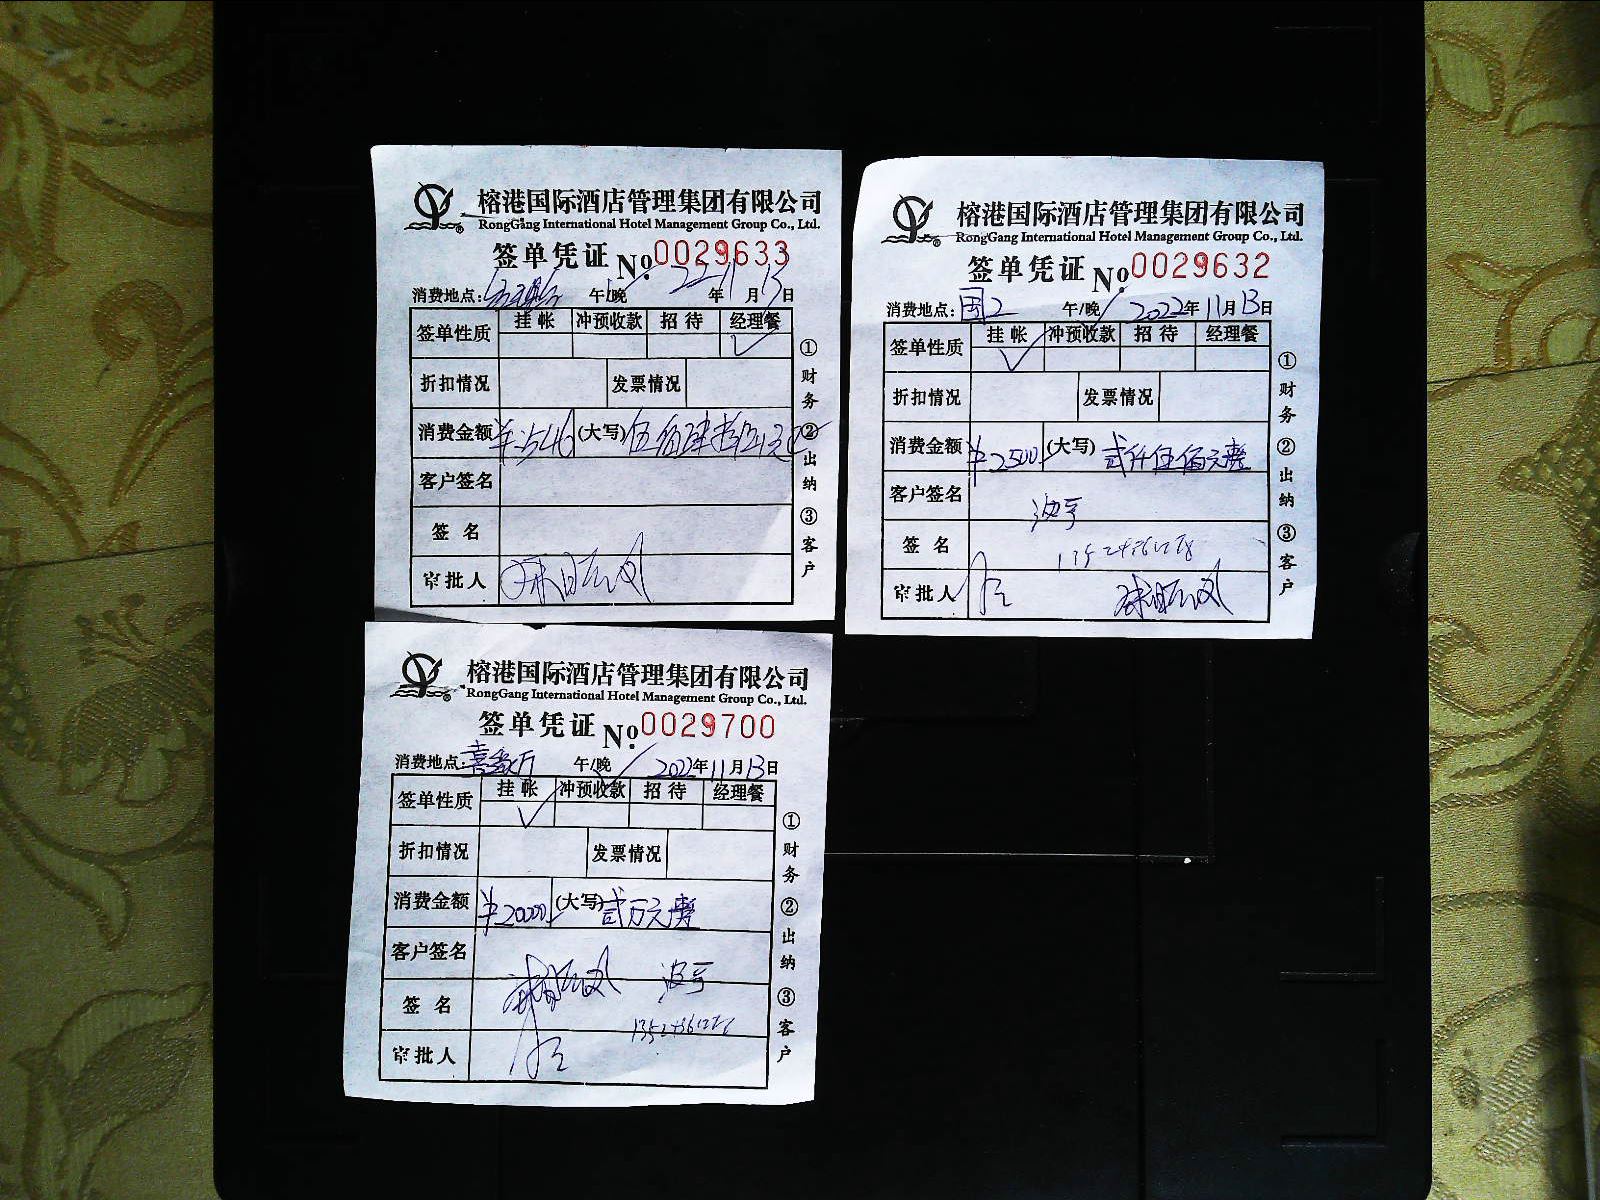 榕港国际酒店管理集团有限公司
RongGang International Hotel Management Group Co., Ltd.
签单凭证 No.0029633
消费地点: 午/晚 22年11月13日
签单性质 挂帐 冲预收款 招待 经理餐
折扣情况 发票情况
消费金额 (大写)
客户签名
签名
审批人
①财务 ②出纳 ③客户
榕港国际酒店管理集团有限公司
RongGang International Hotel Management Group Co., Ltd.
签单凭证 No.0029632
消费地点: 午/晚 2022年11月13日
签单性质 挂帐 冲预收款 招待 经理餐
折扣情况 发票情况
消费金额 ¥2500 (大写) 贰仟伍佰元整
客户签名 波哥
签名
审批人
①财务 ②出纳 ③客户
榕港国际酒店管理集团有限公司
RongGang International Hotel Management Group Co., Ltd.
签单凭证 No.0029700
消费地点: 午/晚 2022年11月13日
签单性质 挂帐 冲预收款 招待 经理餐
折扣情况 发票情况
消费金额 ¥20000 (大写) 贰万元整
客户签名 波哥
签名
审批人
①财务 ②出纳 ③客户